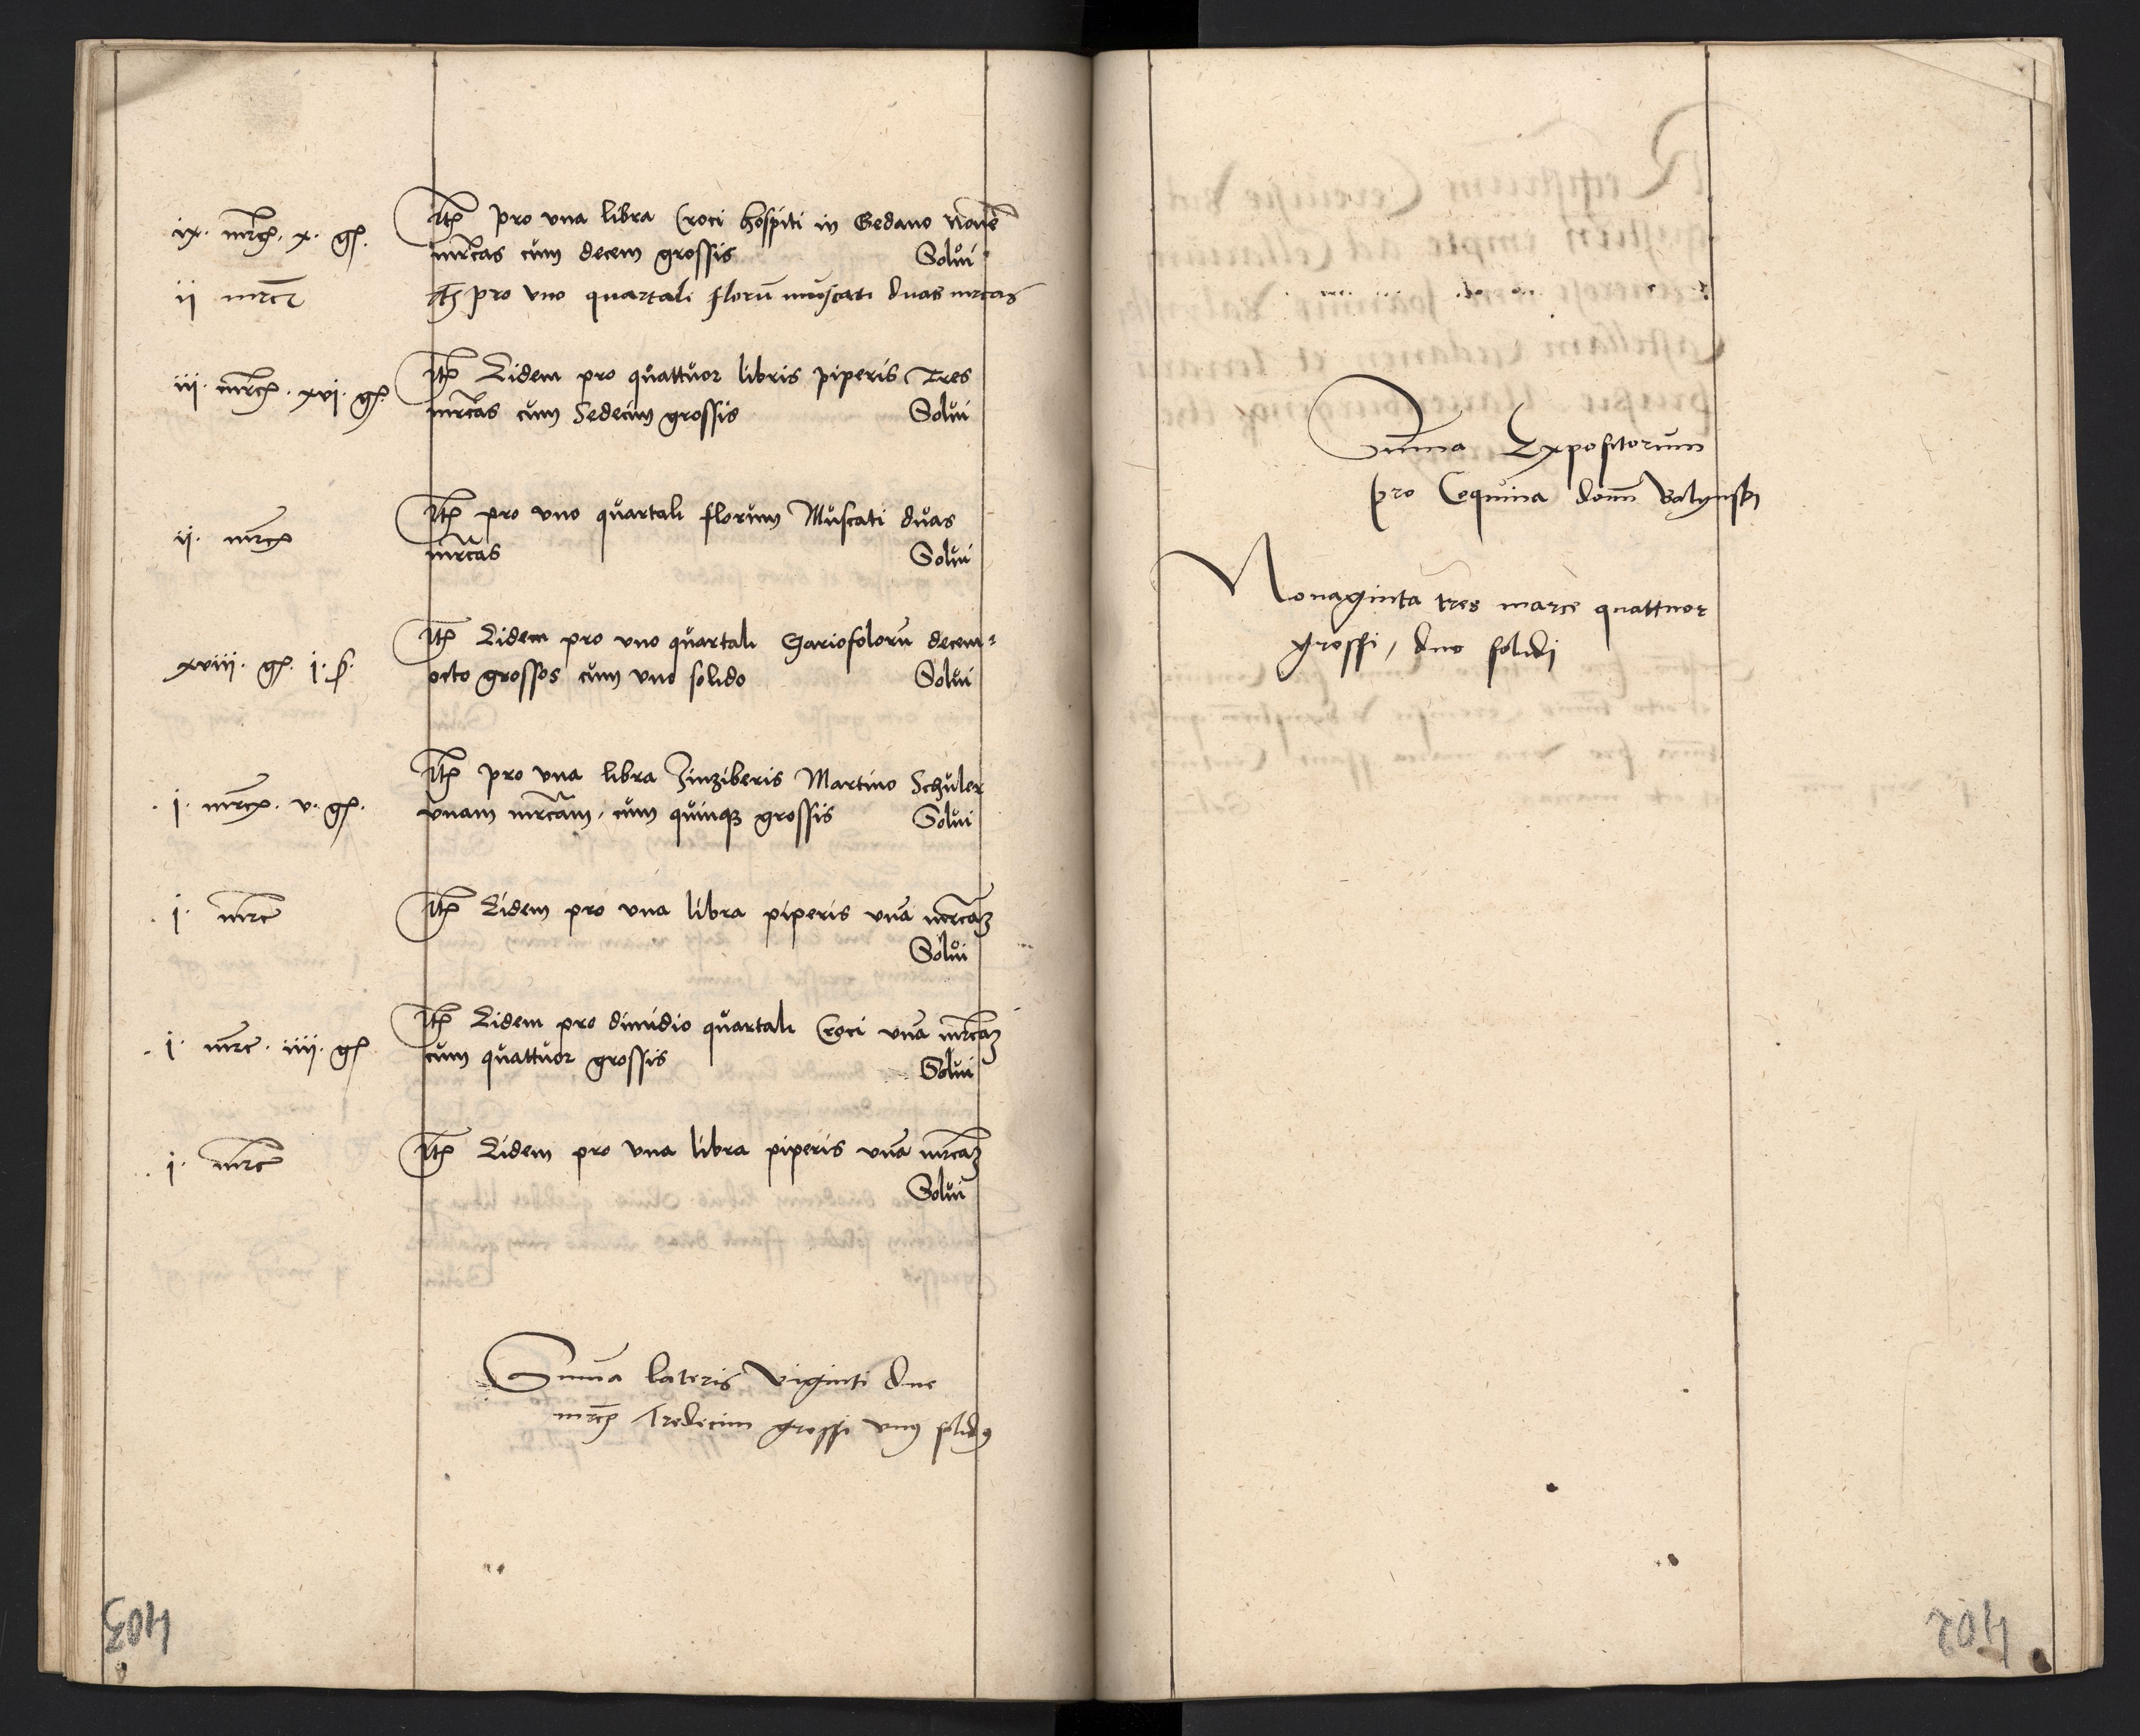 ix. mrcs. x. gs. Itm pro vna libra Croci hospiti in Gedano Nouē
mrcas cum decem grossis Solui
ii mrcs Itm pro vno quartali florū muscati duas mrcas
iii. mrcs. xvi. gs. Itm Eidem pro quattuor libris piperis Tres
mrcas cum Sedecim grossis Solui
ii. mrcs Itm pro vno quartali florum Muscati duas
mrcas Solui
xviii. gs. i. s. Itm Eidem pro vno quartali Gariofolorū decem=
octo grossos cum vno solido Solui
i. mrcs. v. gs. Itm pro vna libra Zinziberis Martino Schuler
vnam mrcam, cum quinqz grossis Solui
i. mrc Itm Eidem pro vna libra piperis vnā mrcaz
Solui
i. mrc. iiii. gs Itm Eidem pro dimidio quartali Croci vnā mrcaz
cum quattuor grossis Solui
i. mrc Itm Eidem pro vna libra piperis vnā mrcaz
Solui
Summa lateris viginti due
mrcs Tredecim grossi vnꝰ solidꝰ
403
Summa Expositorum
pro Coquina domī Balynski
Nonaginta tres marce quattuor
grossi, duo solidi
402